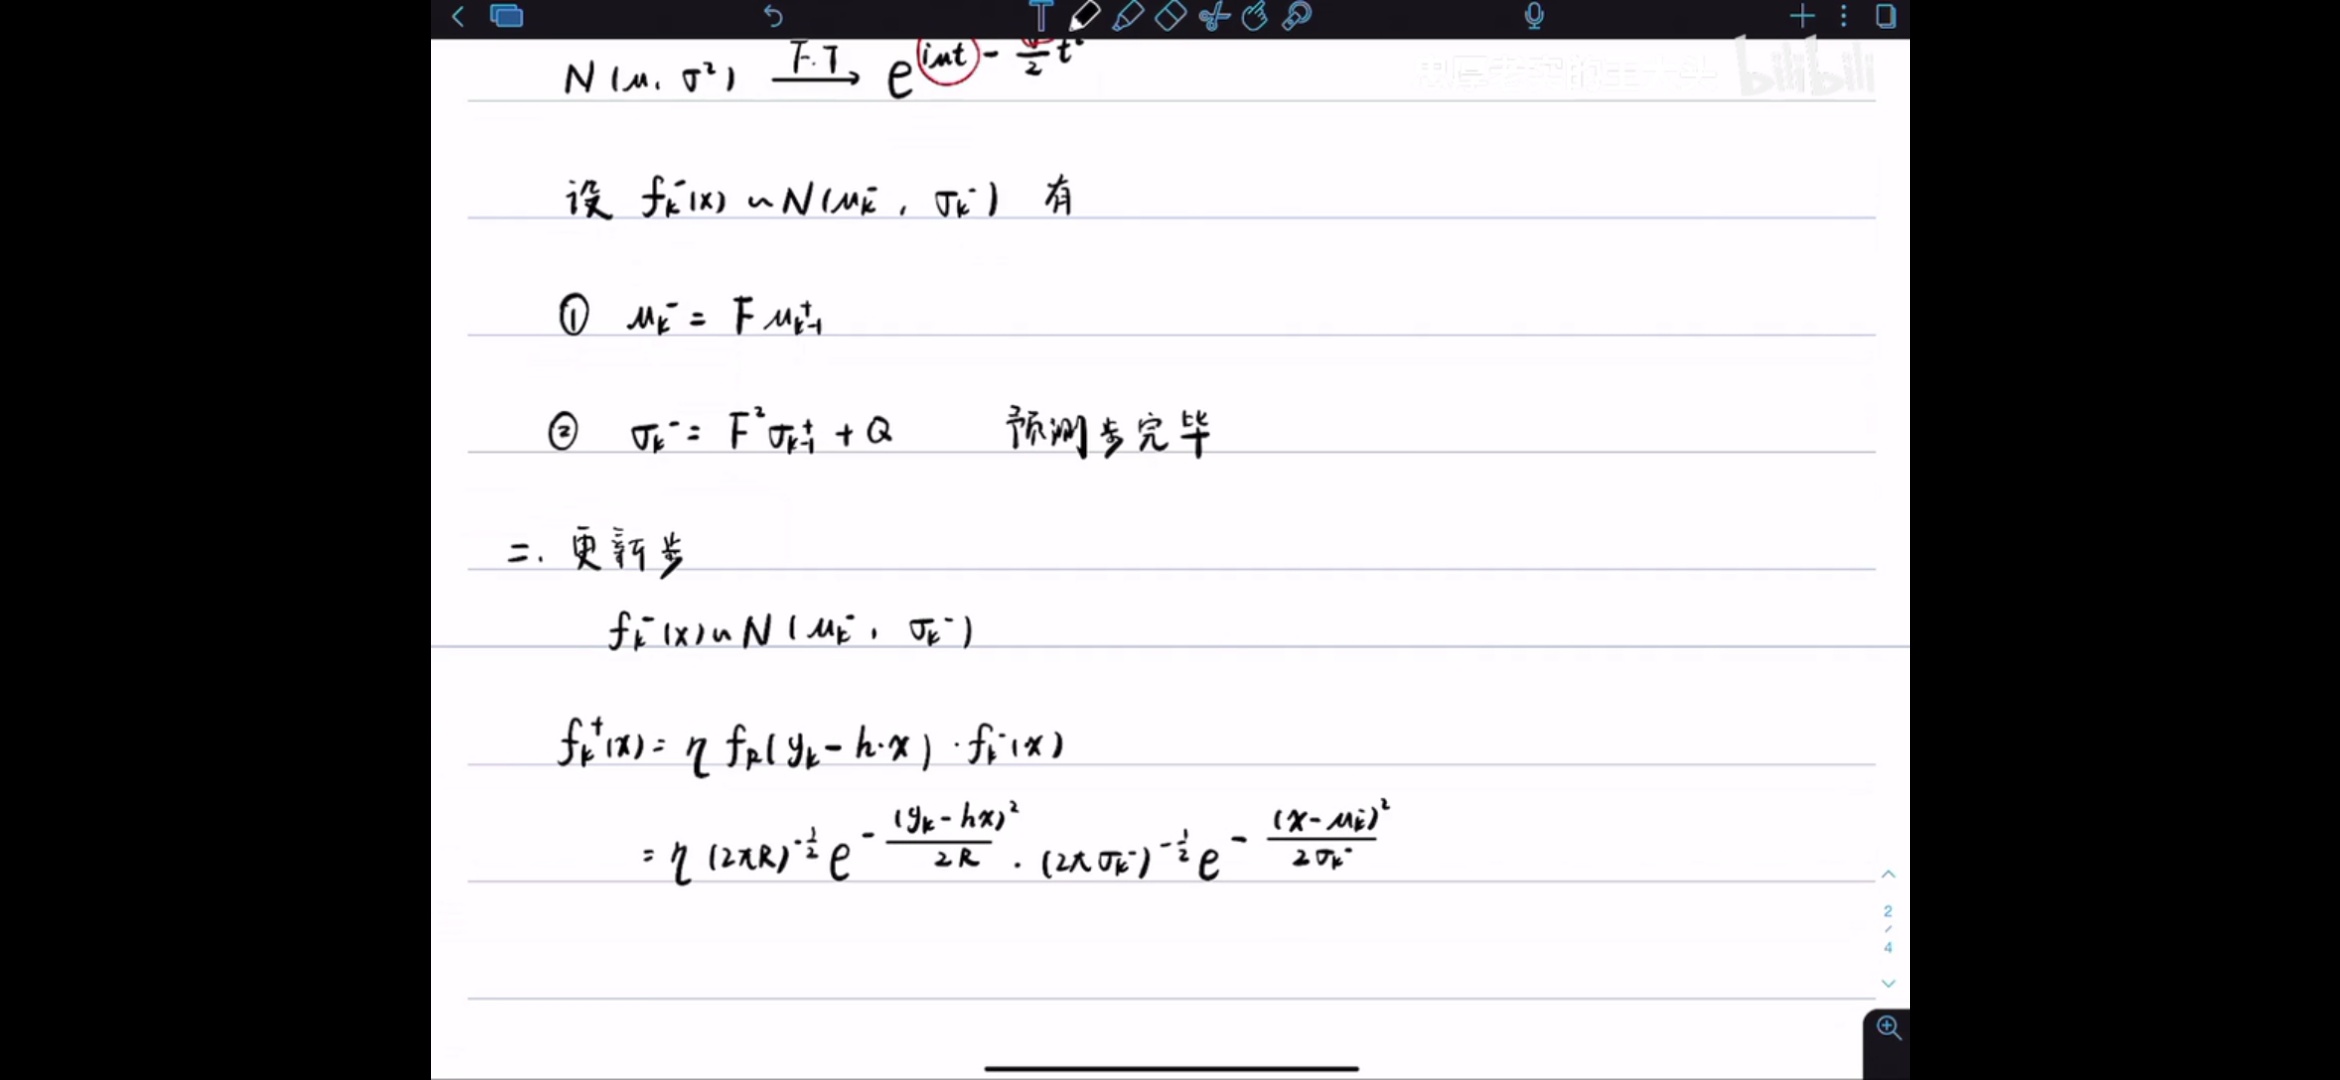 bilibili
N(μ, σ²) F.T → e^(iμt - σ²/2 t²)
设 fₖ⁻(x) ~ N(μₖ⁻, σₖ⁻) 有
① μₖ⁻ = F μₖ₋₁⁺
② σₖ⁻ = F² σₖ₋₁⁺ + Q 预测步完毕
二. 更新步
fₖ⁻(x) ~ N(μₖ⁻, σₖ⁻)
fₖ⁺(x) = η f_R(yₖ - h·x) · fₖ⁻(x)
= η (2πR)^(-1/2) e^(-(yₖ - hx)²/2R) · (2πσₖ⁻)^(-1/2) e^(-(x - μₖ⁻)²/2σₖ⁻)
2
/
4